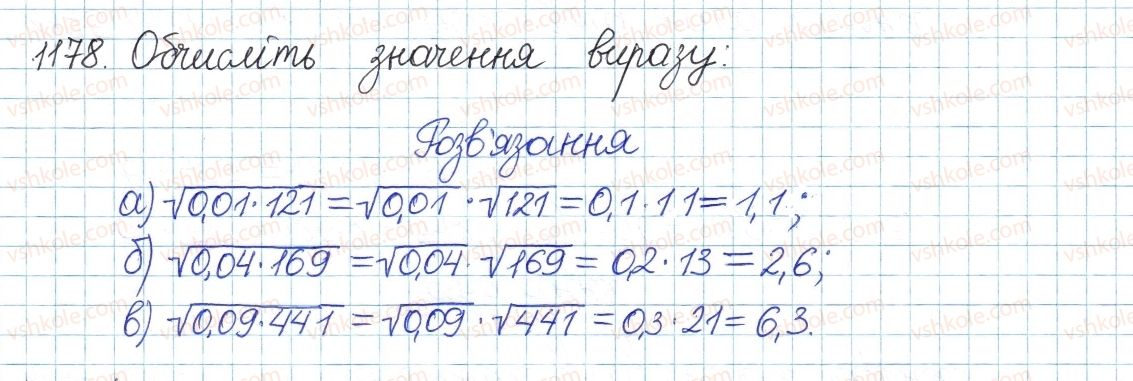 1178. Обчисліть значення виразу:
Розв'язання
а) √0,01·121 = √0,01 · √121 = 0,1·11 = 1,1;
б) √0,04·169 = √0,04 · √169 = 0,2·13 = 2,6;
в) √0,09·441 = √0,09 · √441 = 0,3·21 = 6,3.